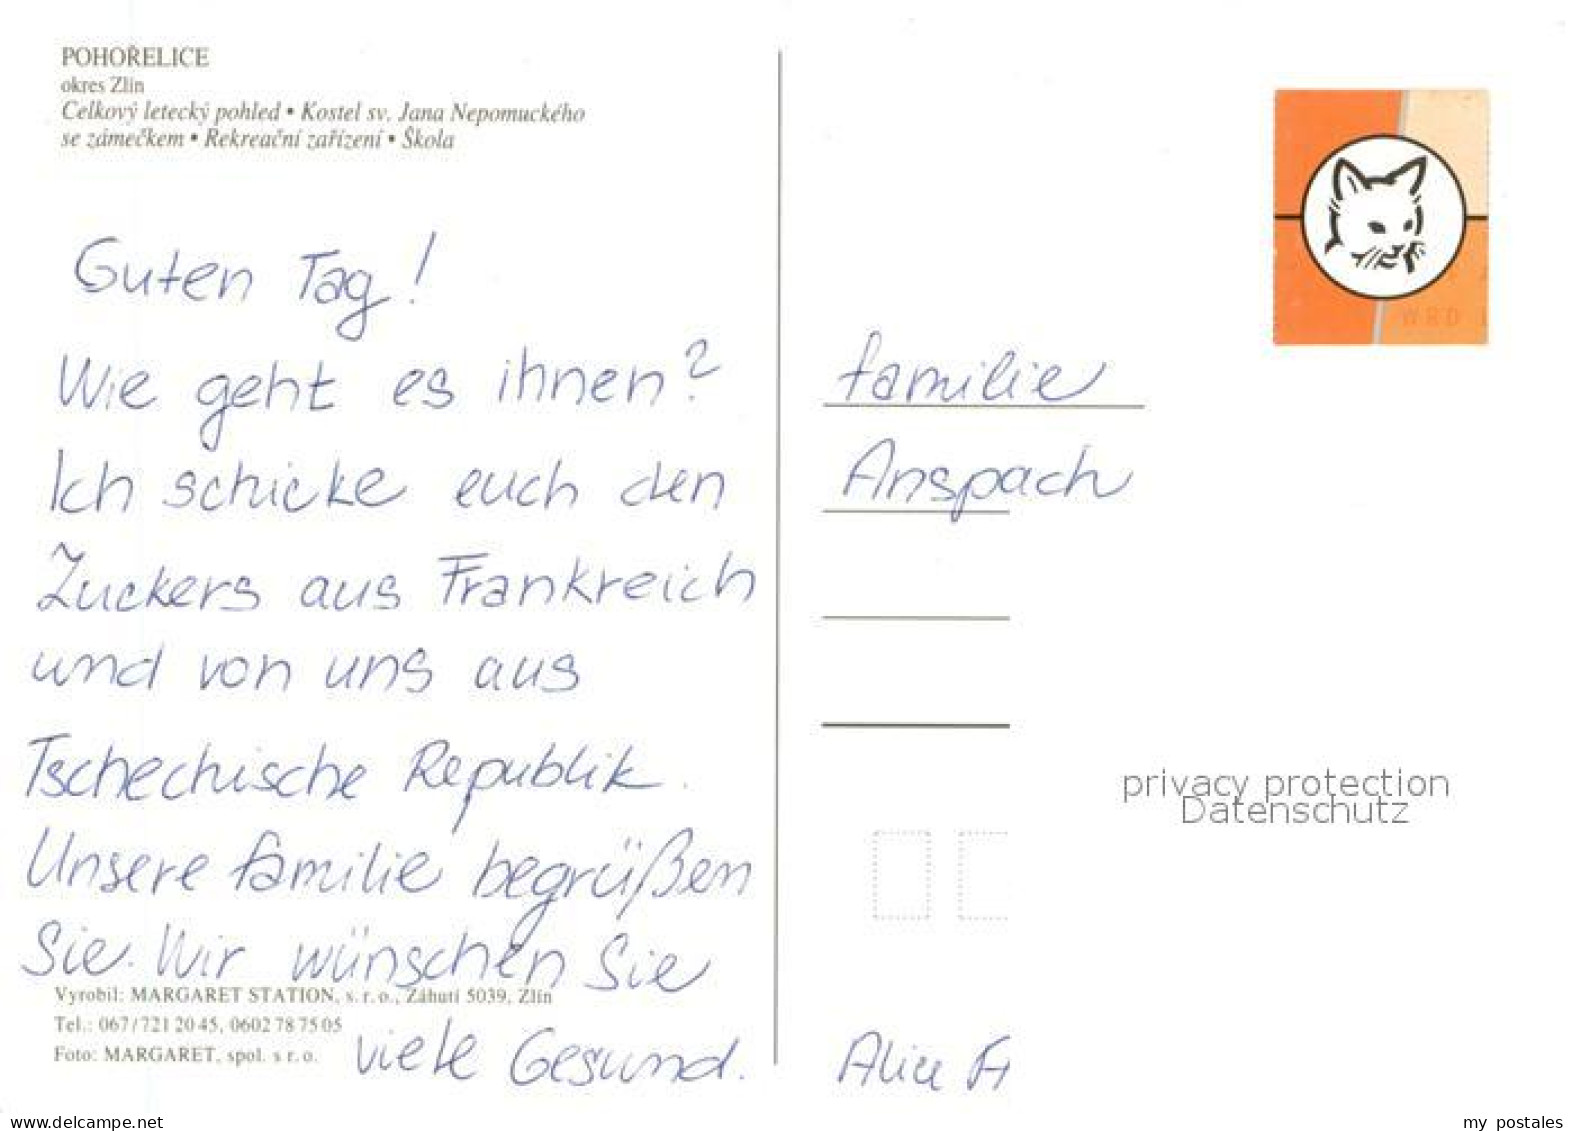 POHOŘELICE
okres Zlín
Celkový letecký pohled • Kostel sv. Jana Nepomuckého
se zámečkem • Rekreační zařízení • Škola
Guten Tag!
Wie geht es ihnen?
Ich schicke euch den
Zuckers aus Frankreich
und von uns aus
Tschechische Republik.
Unsere familie begrüßen
Sie. Wir wünschen Sie
viele Gesund.
Vyrobil: MARGARET STATION, s. r. o., Záhutí 5039, Zlín
Tel.: 067/721 20 45, 0602 78 75 05
Foto: MARGARET, spol. s r. o.
familie
Anspach
Alice
privacy protection
Datenschutz
www.delcampe.net
my_postales